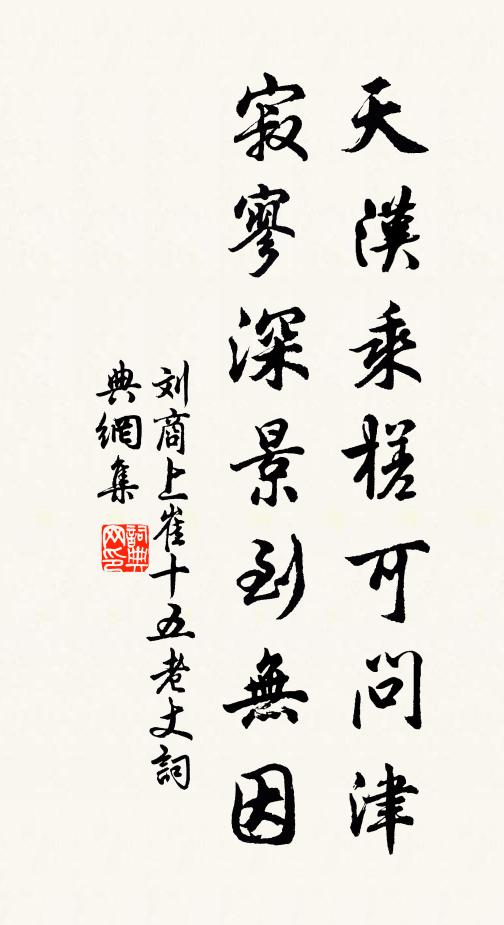 天漢乘槎可問津
寂寥深景到無因
刘商上崔十五老丈詞
典網集
詞典
网印